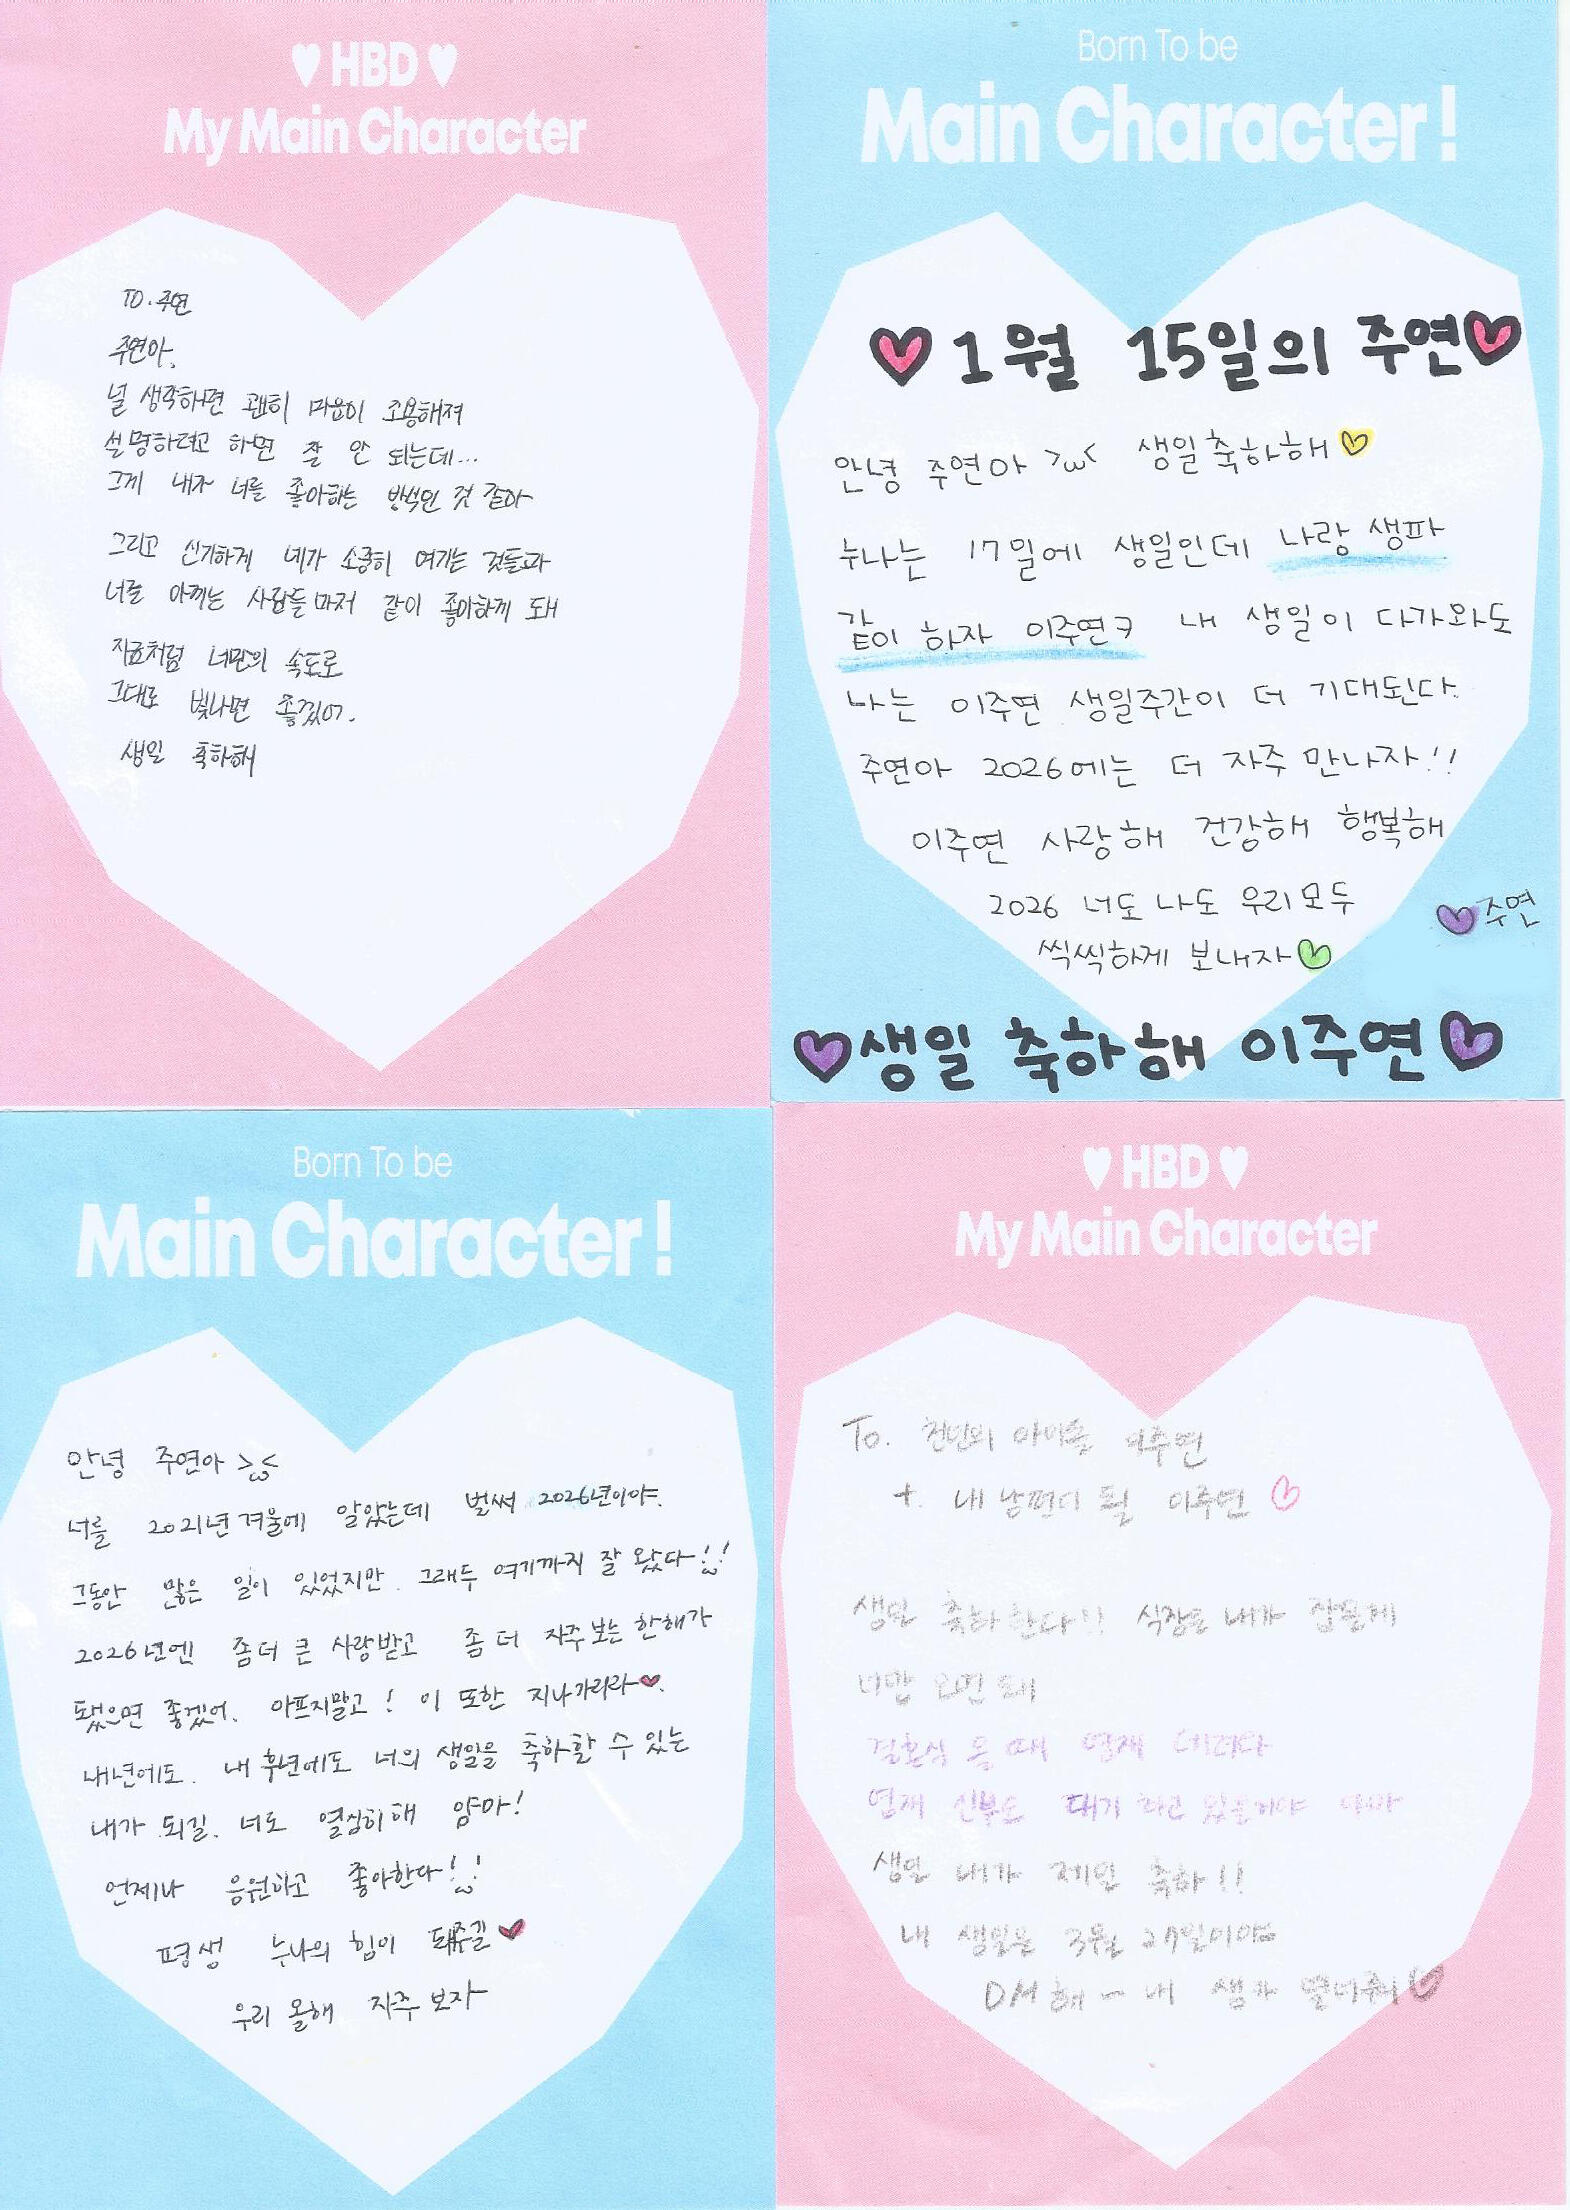 ♥ HBD ♥
My Main Character
TO. 주연
주연아,
널 생각하면 괜히 마음이 조용해져
설명하려고 하면 잘 안 되는데...
그게 내가 너를 좋아하는 방식인 것 같아
그리고 신기하게 네가 소중히 여기는 것들과
너를 아끼는 사람들마저 같이 좋아하게 돼
지금처럼 너만의 속도로
그대로 빛나면 좋겠어.
생일 축하해
Born To be
Main Character!
♥1월 15일의 주연♥
안녕 주연아 >ω< 생일축하해♡
누나는 17일에 생일인데 나랑 생파
같이 하자 이주연ㅋ 내 생일이 다가와도
나는 이주연 생일주간이 더 기대된다.
주연아 2026에는 더 자주 만나자!!
이주연 사랑해 건강해 행복해
2026 너도 나도 우리모두
씩씩하게 보내자♡
♡주연
♥생일 축하해 이주연♥
Born To be
Main Character!
안녕 주연아 >ω<
너를 2021년 겨울에 알았는데 벌써 2026년이야.
그동안 많은 일이 있었지만. 그래두 여기까지 잘 왔다!!
2026년엔 좀더 큰 사랑받고 좀 더 자주보는 한해가
됐으면 좋겠어. 아프지말고! 이 또한 지나가리라♥.
내년에도. 내 후년에도 너의 생일을 축하할 수 있는
내가 되길. 너도 열심히해 얌마!
언제나 응원하고 좋아한다!!
평생 누나의 힘이 돼주길♥
우리 올해 자주 보자
♥ HBD ♥
My Main Character
To. 천년의 아이돌 이주연
+. 내 남편이 될 이주연 ♡
생일 축하한다!! 식장은 내가 잡을게
너만 오면 돼
결혼식 올 때 영재 데려와
영재 신부도 대기 하고 있을거야 아마
생일 내가 제일 축하!!
내 생일은 3월 27일이야
DM해~ 내 생카 열어줘♡